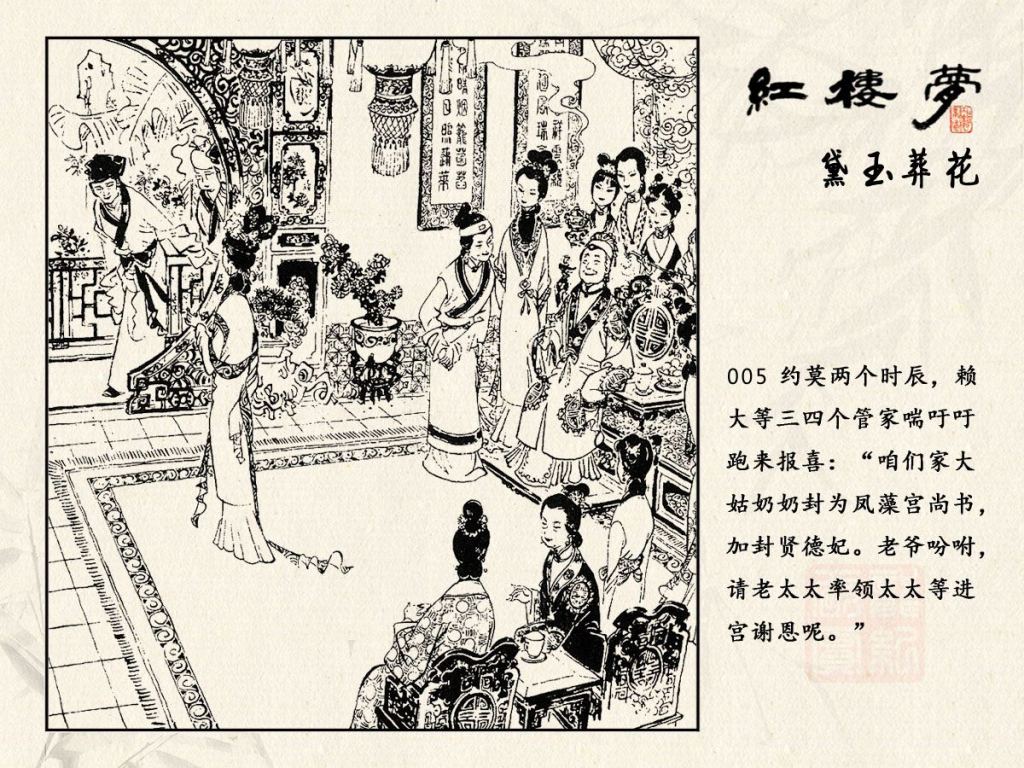 紅楼夢
黛玉葬花
005 约莫两个时辰，赖
大等三四个管家喘吁吁
跑来报喜：“咱们家大
姑奶奶封为凤藻宫尚书，
加封贤德妃。老爷吩咐，
请老太太率领太太等进
宫谢恩呢。”